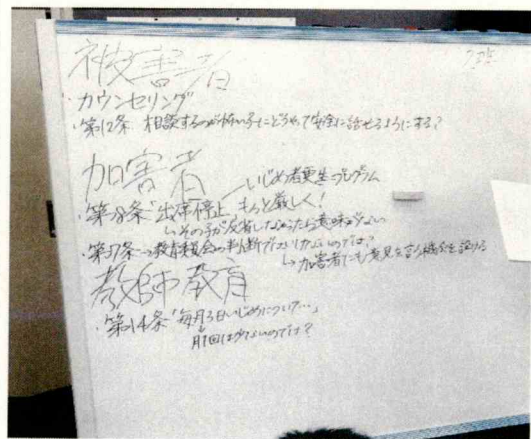 被害者
・カウンセリング
・第12条 相談するのが怖い子にどうやって安全に話せるようにする?
加害者
いじめ者更生プログラム
・第28条 出席停止 もっと厳しく!
↳その子が反省しなかったら意味がない
・第37条→教育委員会の判断でよいのでは?
↳加害者にも意見を言う機会を設ける
教師教育
・第14条「毎月3日いじめについて…」
月1回は少ないのでは?